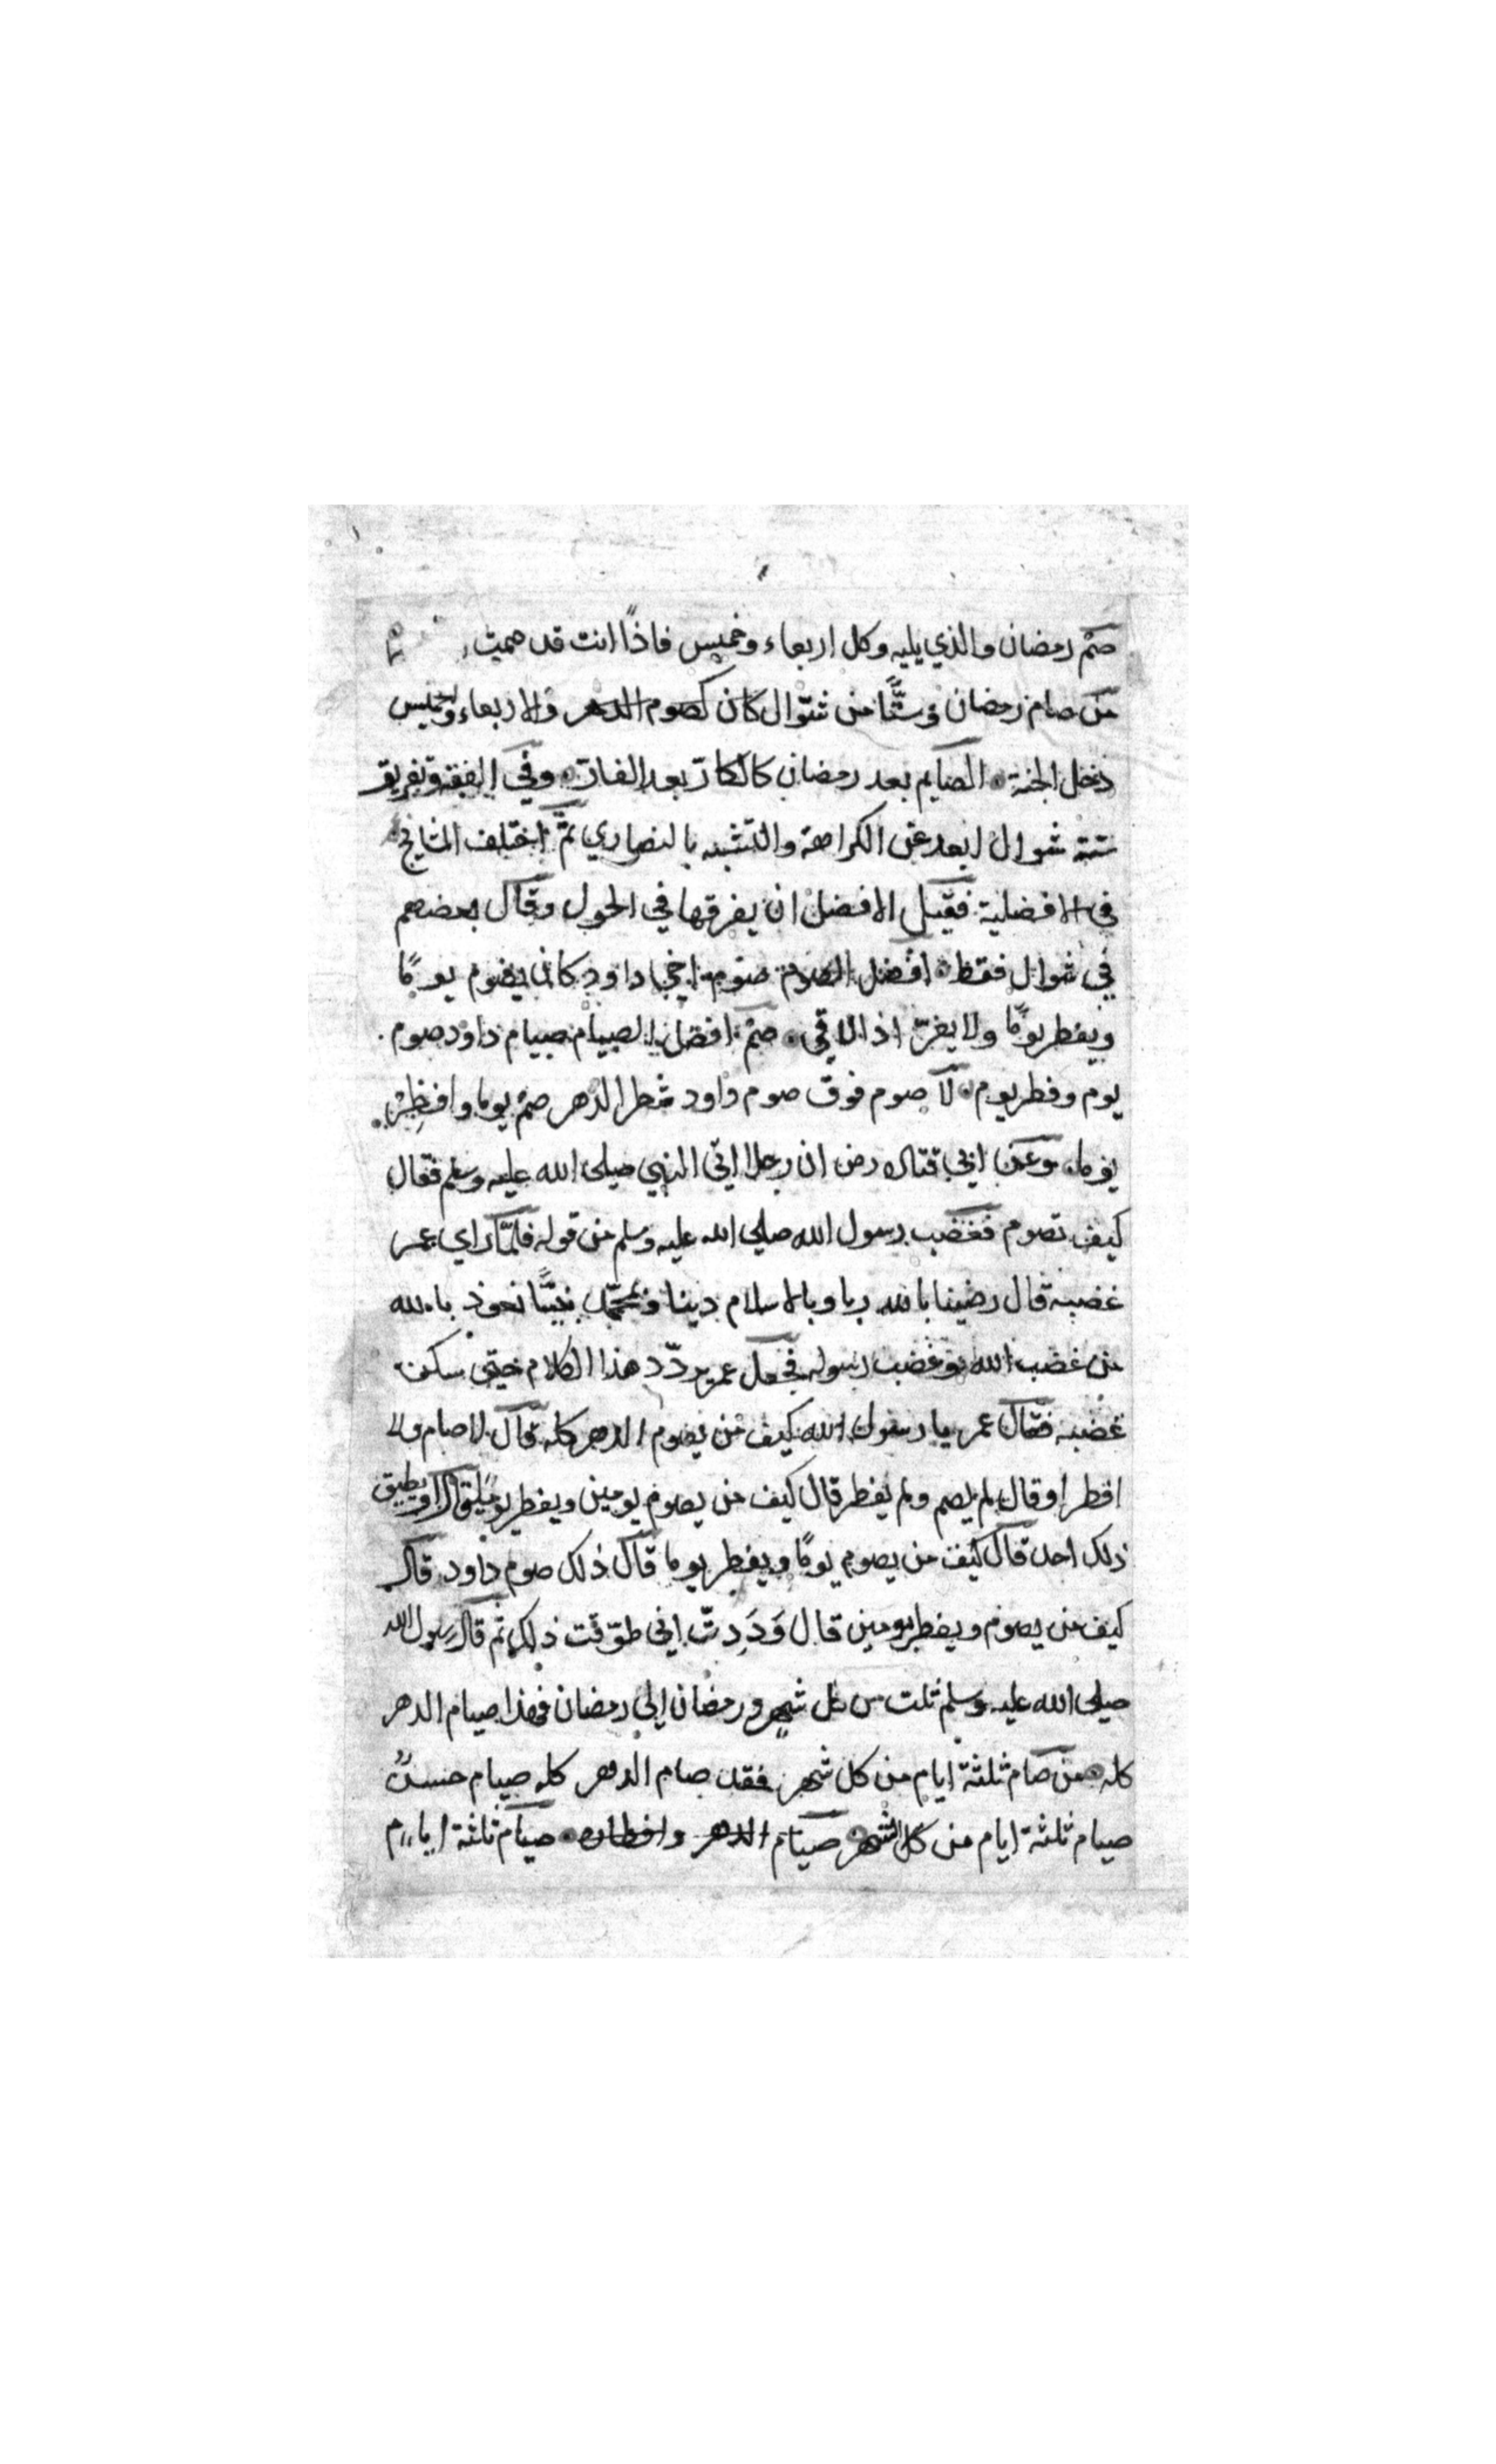 صُمْ رمضان والذي يليه وكل اربعاء وخميس فاذًا انت قد صمت
من صام رمضان وستًّا من شوّال كان كصوم الدهر والاربعاء وخميس
دخل الجنة الصايم بعد رمضان كالكارّ بعد الفارّ وفي الفقه وتفريق
ستة شوال ابعد عن الكراهة والتشبه بالنصاري ثمّ اختلف المشايخ
في الافضلية فقيل الافضل ان يفرقها في الحول وقال بعضهم
في شوال فقط افضل الصوم صوم اخي داود كان يصوم يومًا
ويفطر يومًا ولا يفرّ اذا لاقي صُمْ افضل الصيام صيام داود صوم
يوم وفطر يوم لا صوم فوق صوم داود شطر الدهر صُمْ يوما وافطِرْ
يوما وعن ابي قتاده رض ان رجلا اتي النبي صلى الله عليه وسلم فقال
كيف تصوم فغضب رسول الله صلي الله عليه وسلم من قوله فلمّا راي عمر
غضبه قال رضينا بالله ربا وبالاسلام دينا وبمحمّد نبيًّا نعوذ بالله
من غضب الله وغضب رسوله فجعل عمر يردّد هذا الكلام حتي سكن
غضبه فقال عمر يا رسول الله كيف من يصوم الدهر كله قال لا صام ولا
افطر او قال لم يصم ولم يفطر قال كيف من يصوم يومين ويفطر يومًا قال او يطيق
ذلك احد قال كيف من يصوم يومًا ويفطر يوما قال ذلك صوم داود قال
كيف من يصوم ويفطر يومين قال وَدَدِتّ اني طوّقت ذلك ثم قال رسول الله
صلي الله عليه وسلم ثلث من كل شهر ورمضان الي رمضان فهذا صيام الدهر
كله من صام ثلثة ايام من كل شهر فقد صام الدهر كله صيام حسنٌ
صيام ثلثة ايام من كل الشهر صيام الدهر وافطاره صيام ثلثة ايام